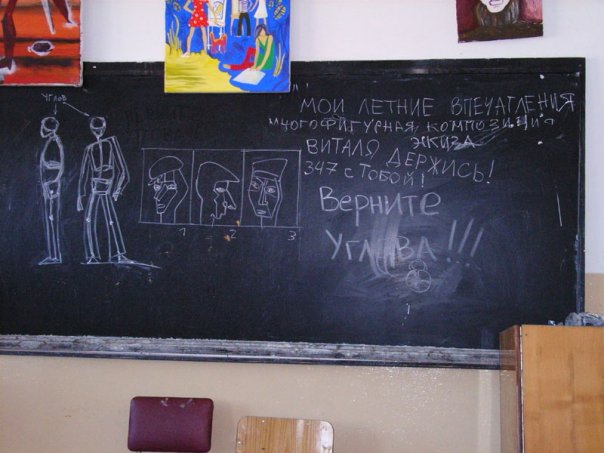 УГЛОВ
1 2 3
МОИ ЛЕТНИЕ ВПЕЧАТЛЕНИЯ
МНОГОФИГУРНАЯ КОМПОЗИЦИЯ
ЭКИЗА
ВИТАЛЯ ДЕРЖИСЬ!
347 С ТОБОЙ!
Верните
УГЛОВА!!!